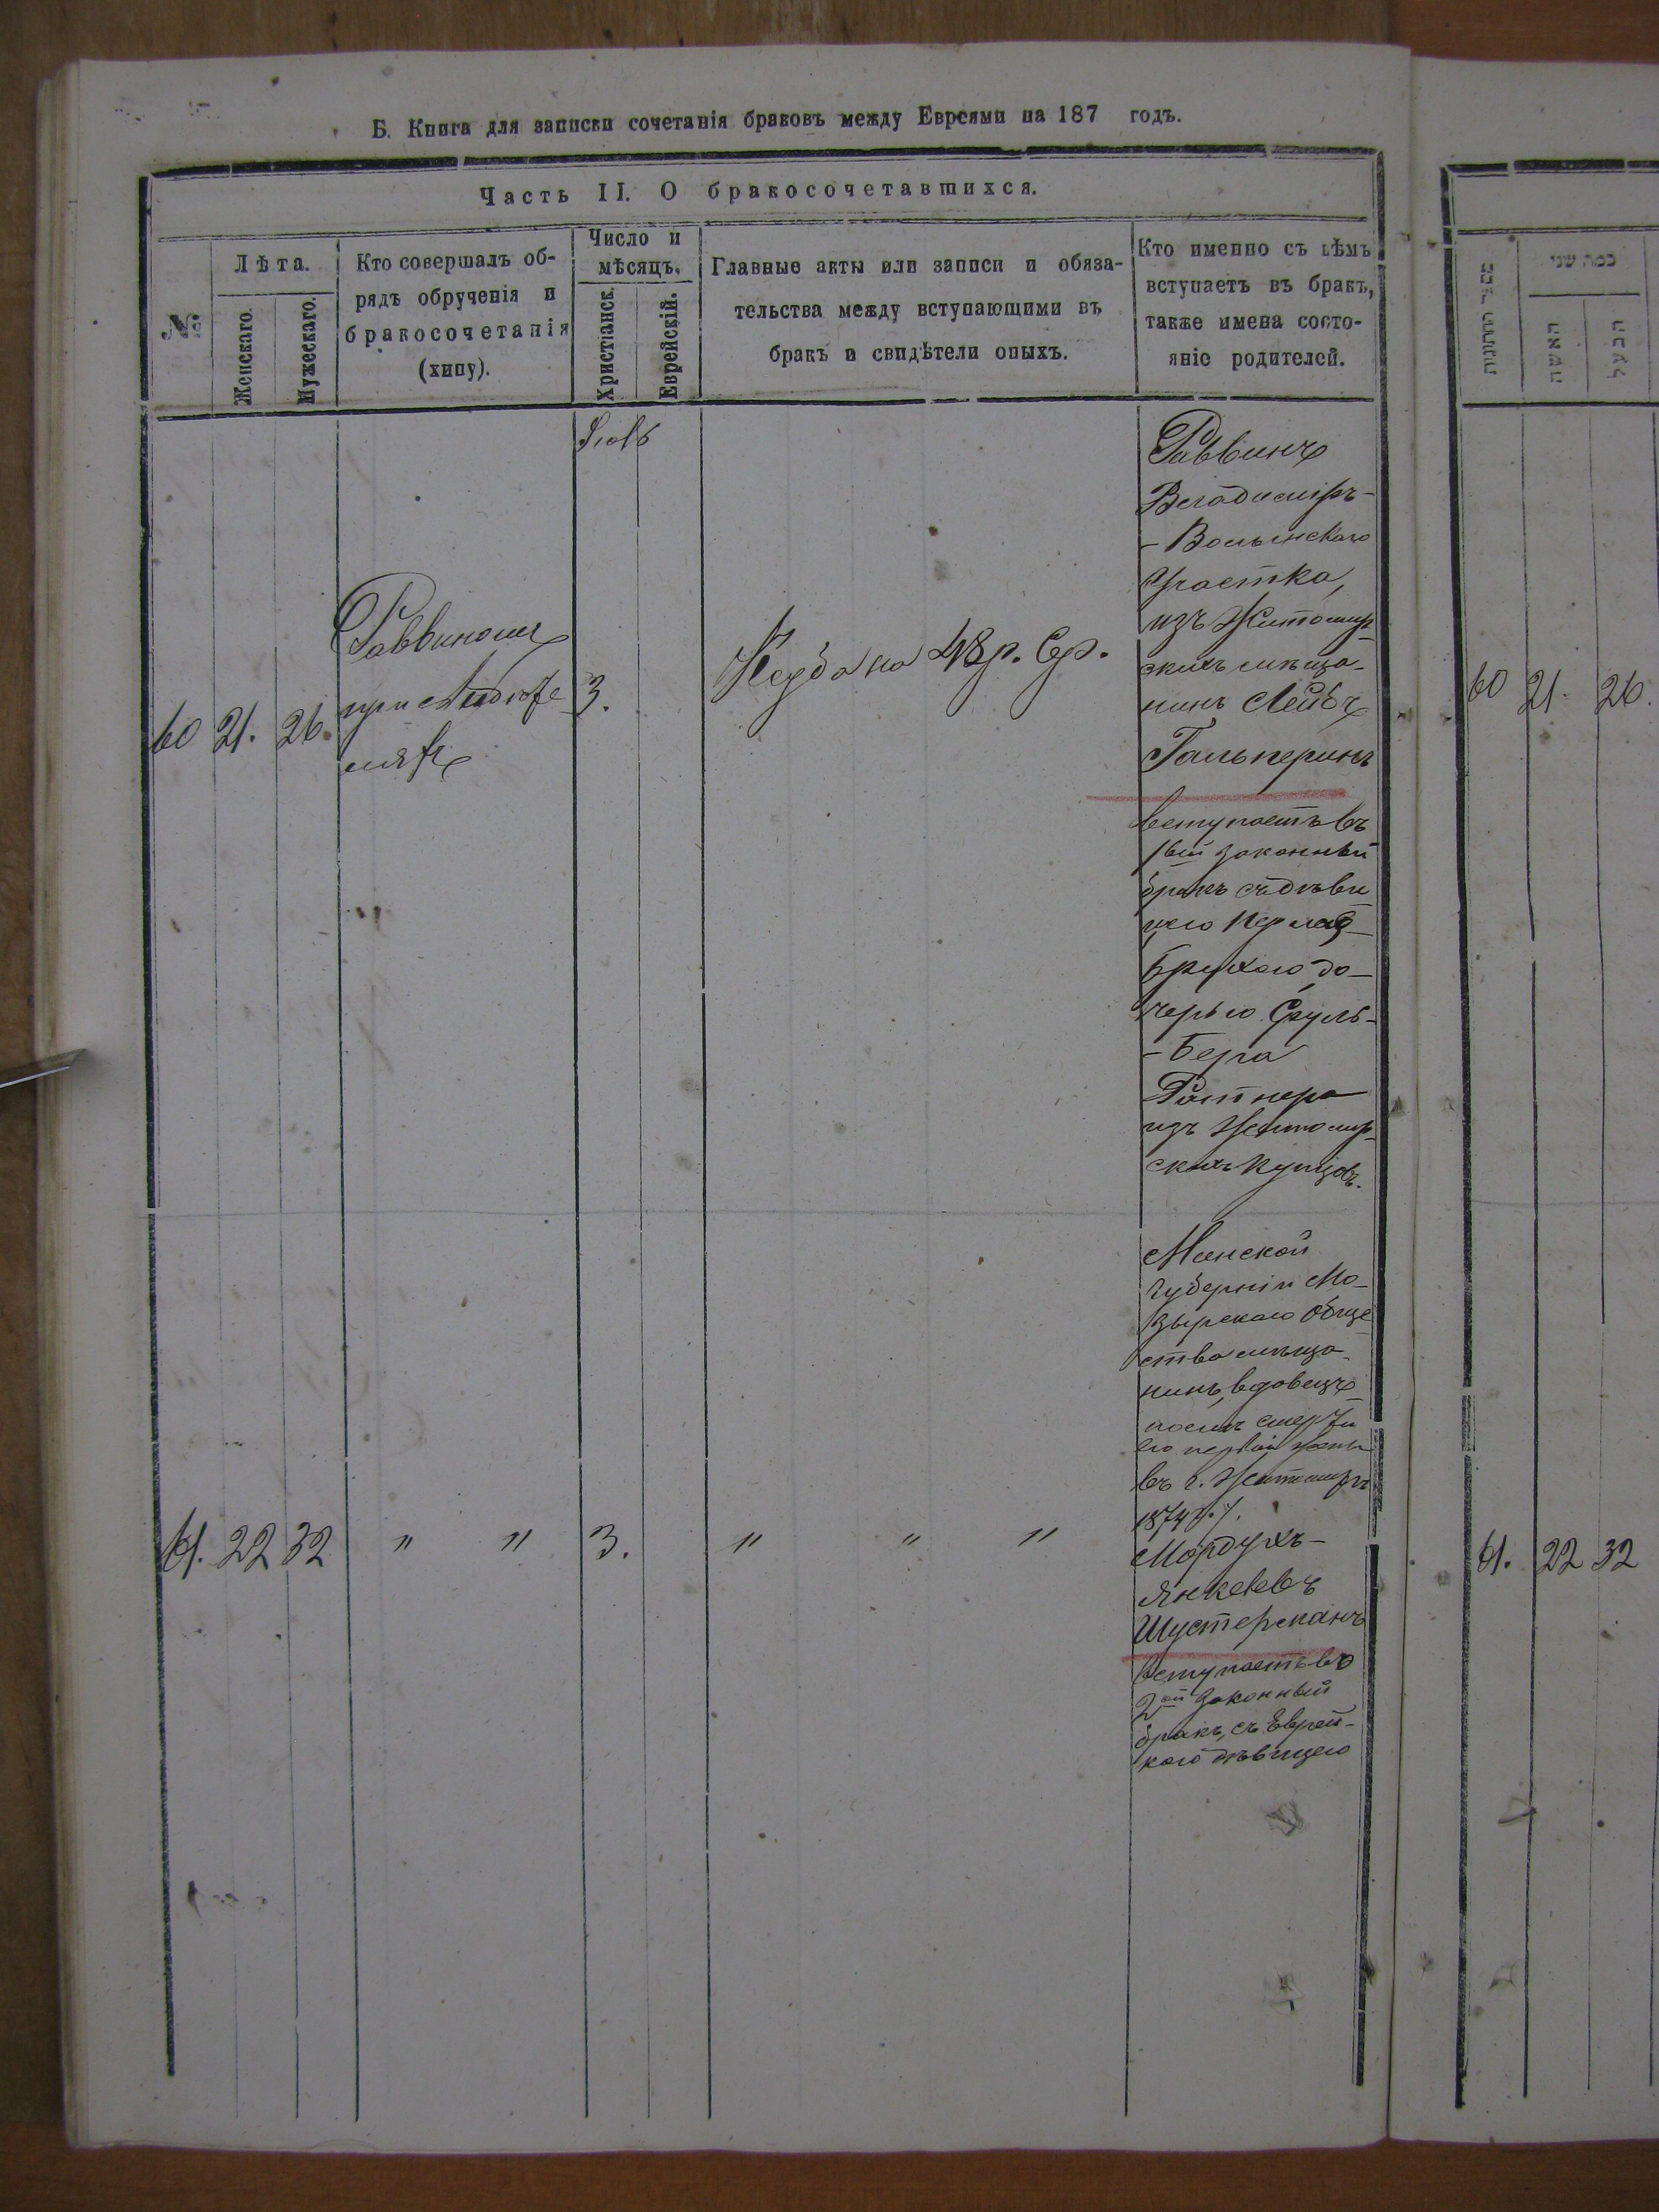 Б. Книга для записки сочетанія браковъ между Евреями на 187 годъ.
Часть II. О бракосочетавшихся.
№
Лѣта.
Женскаго.
Мужескаго.
Кто совершалъ об-
рядъ обрученія и
бракосочетанія
(хипу).
Число и
мѣсяцъ.
Христіанск.
Еврейскій.
Главные акты или записи и обяза-
тельства между вступающими въ
бракъ и свидѣтели оныхъ.
Кто именно съ кѣмъ
вступаетъ въ бракъ,
также имена состо-
яніе родителей.
60 21. 26.
Раввиномъ
при
3.
Кедба на 48 р. Сер.
Раввинъ
Владиміръ-
-Волынскаго
Участка,
изъ Житомир-
скихъ мѣща-
нинъ Лейбъ
Гальперинъ
вступаетъ въ
1вый законный
бракъ съ дѣви
цею Перлею-
Брухою до-
черью Сруль-
-Бера
Ратнера
изъ Житомир-
скихъ купцовъ.
61. 22 32
" " 3. " " "
Минской
Губерніи Мо-
зырскаго Обще
ства мѣща-
нинъ, вдовецъ
послѣ смерти
его первой жены
въ г. Житомирѣ
1874 г./.
Мордухъ-
Янкель
Шустерманъ
вступаетъ во
2ой законный
бракъ, съ Еврей-
кою дѣвицею
כמה שני
האשה
הבעל
60 21. 26.
61. 22 32